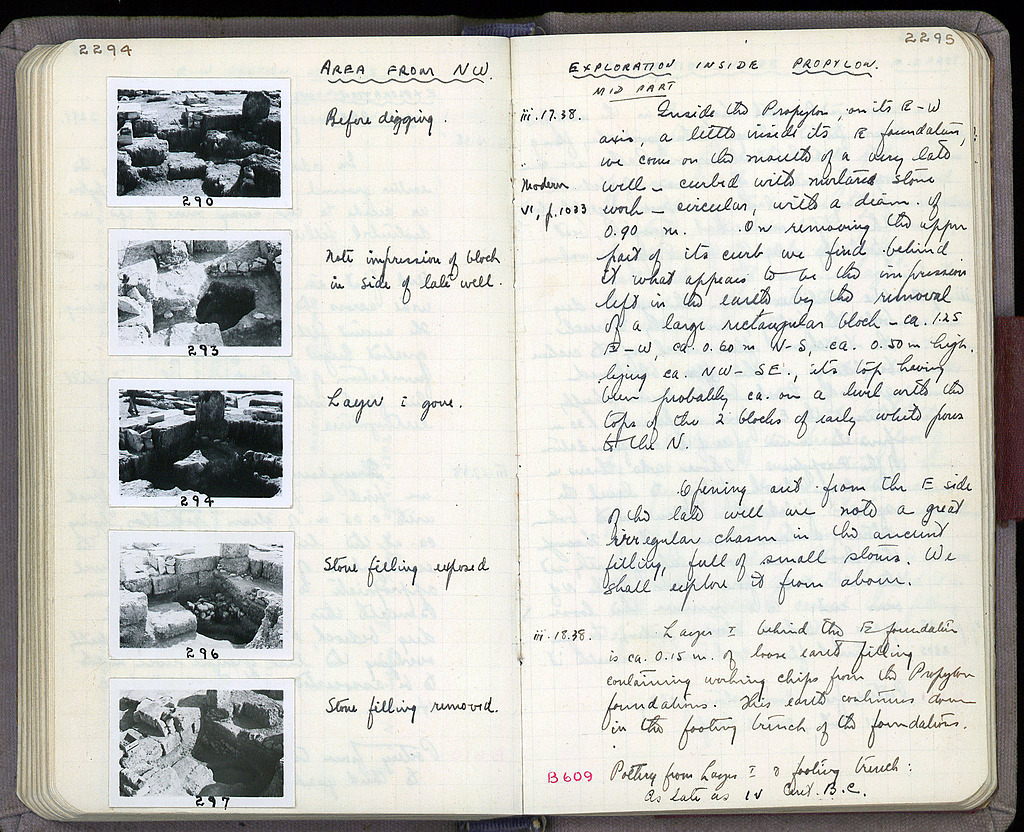 2294
AREA FROM NW.
290
Before digging.
293
Note impression of block
in side of late well.
294
Layer I gone.
296
Stone filling exposed
297
Stone filling removed.
2295
EXPLORATION INSIDE PROPYLON.
MID PART
iii.17.38. Inside the Propylon, on its E-W
axis, a little inside its E foundation,
we come on the mouth of a very late
Modern well - curbed with mortared stone
VI, p.1033 work - circular, with a diam. of
0.90 m. On removing the upper
part of its curb we find behind
it what appears to be the impression
left in the earth by the removal
of a large rectangular block - ca. 1.25
E-W, ca. 0.60 m N-S, ca. 0.50 m high.
lying ca. NW-SE., its top having
been probably ca. on a level with the
tops of the 2 blocks of early white poros
to the N.
Opening out from the E side
of the late well we note a great
irregular chasm in the ancient
filling, full of small stones. We
shall explore it from above.
iii.18.38. Layer I behind the E foundation
is ca. 0.15 m. of loose earth filling
containing working chips from the Propylon
foundations. This earth continues down
in the footing trench of the foundations.
B609 Pottery from Layer I & footing trench:
As late as IV Cent. B.C.